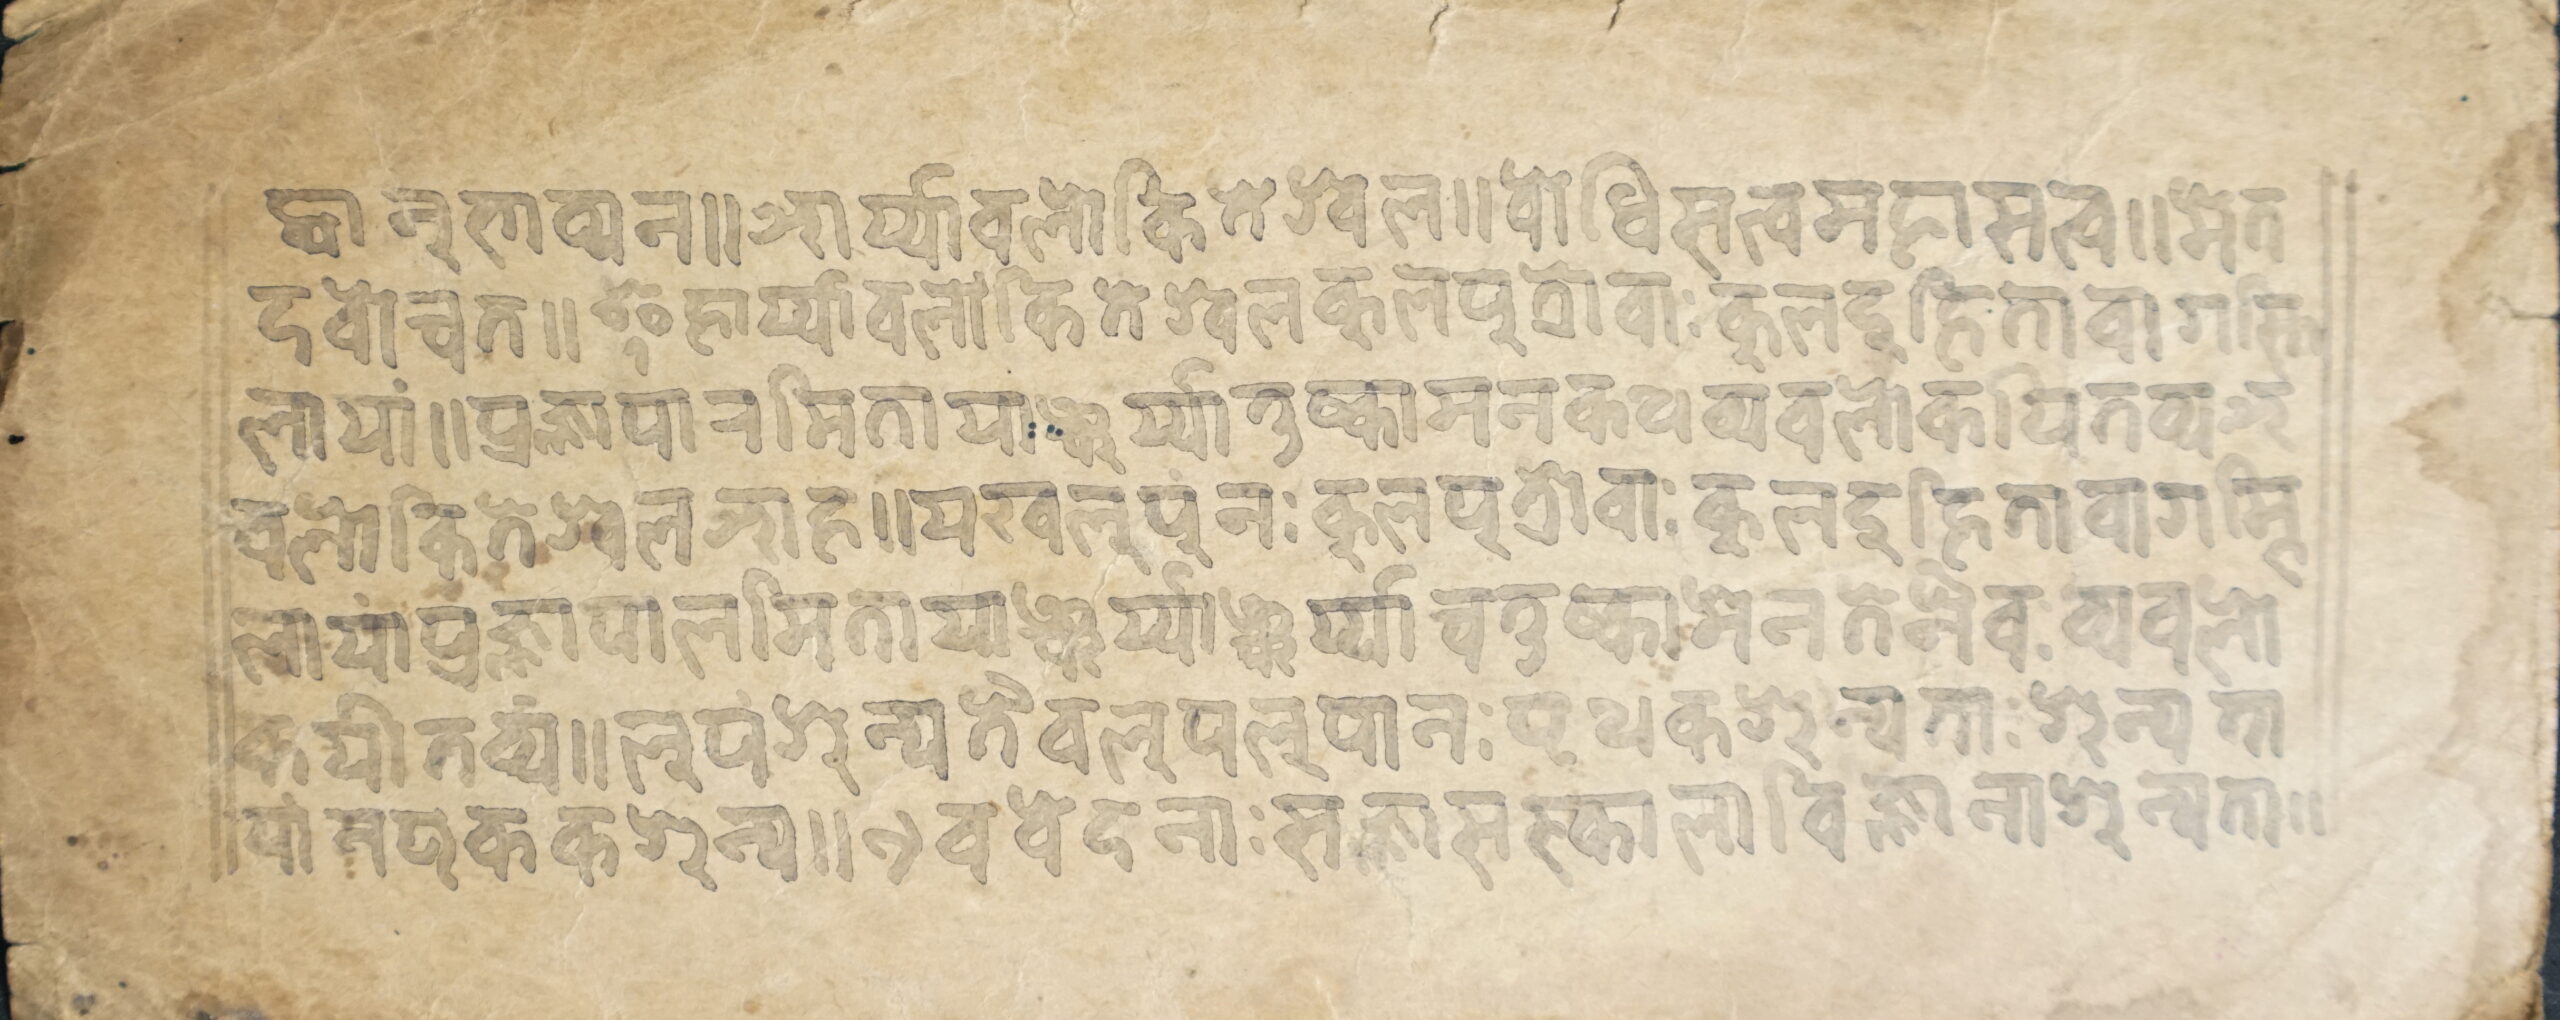 द्धानुभाव्यन॥आर्य्यावलोकितश्वल॥बोधिसत्वमहासत्व॥मेत
दवोचत॥ ॐहार्य्यावलोकितश्वलकुलपुत्रोवाः कुलदुहितावाग
लायां॥प्रज्ञापारमितायाञ्चर्य्यातुष्कामनकथव्यवलोकयितव्यआ
वलोकितश्वलआह॥यखलुपुनः कुलपुत्रोवाः कुलदुहितावागम्भि
लायांप्रज्ञापालमितायाञ्चर्य्याञ्चर्य्याचतुष्कामनतनैवः व्यवलो
कयीतव्यं॥लुपंशुन्यतैवलुपलुपानः पृथकशुन्यताः शुन्यता
यांनपृककशुन्य॥ एववेदनाः सज्ञासस्कालाविज्ञानाशुन्यता॥